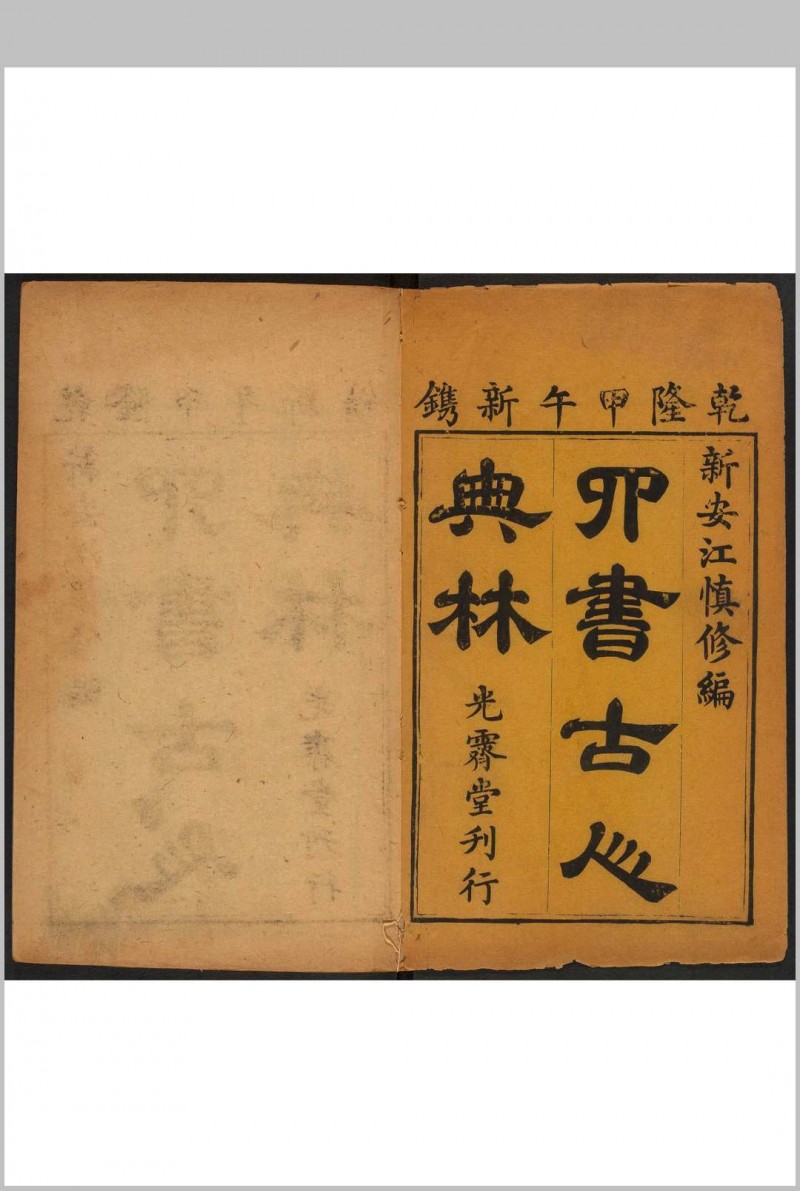 乾隆甲午新鐫
新安江慎修編
四書古人
典林
光霽堂刋行